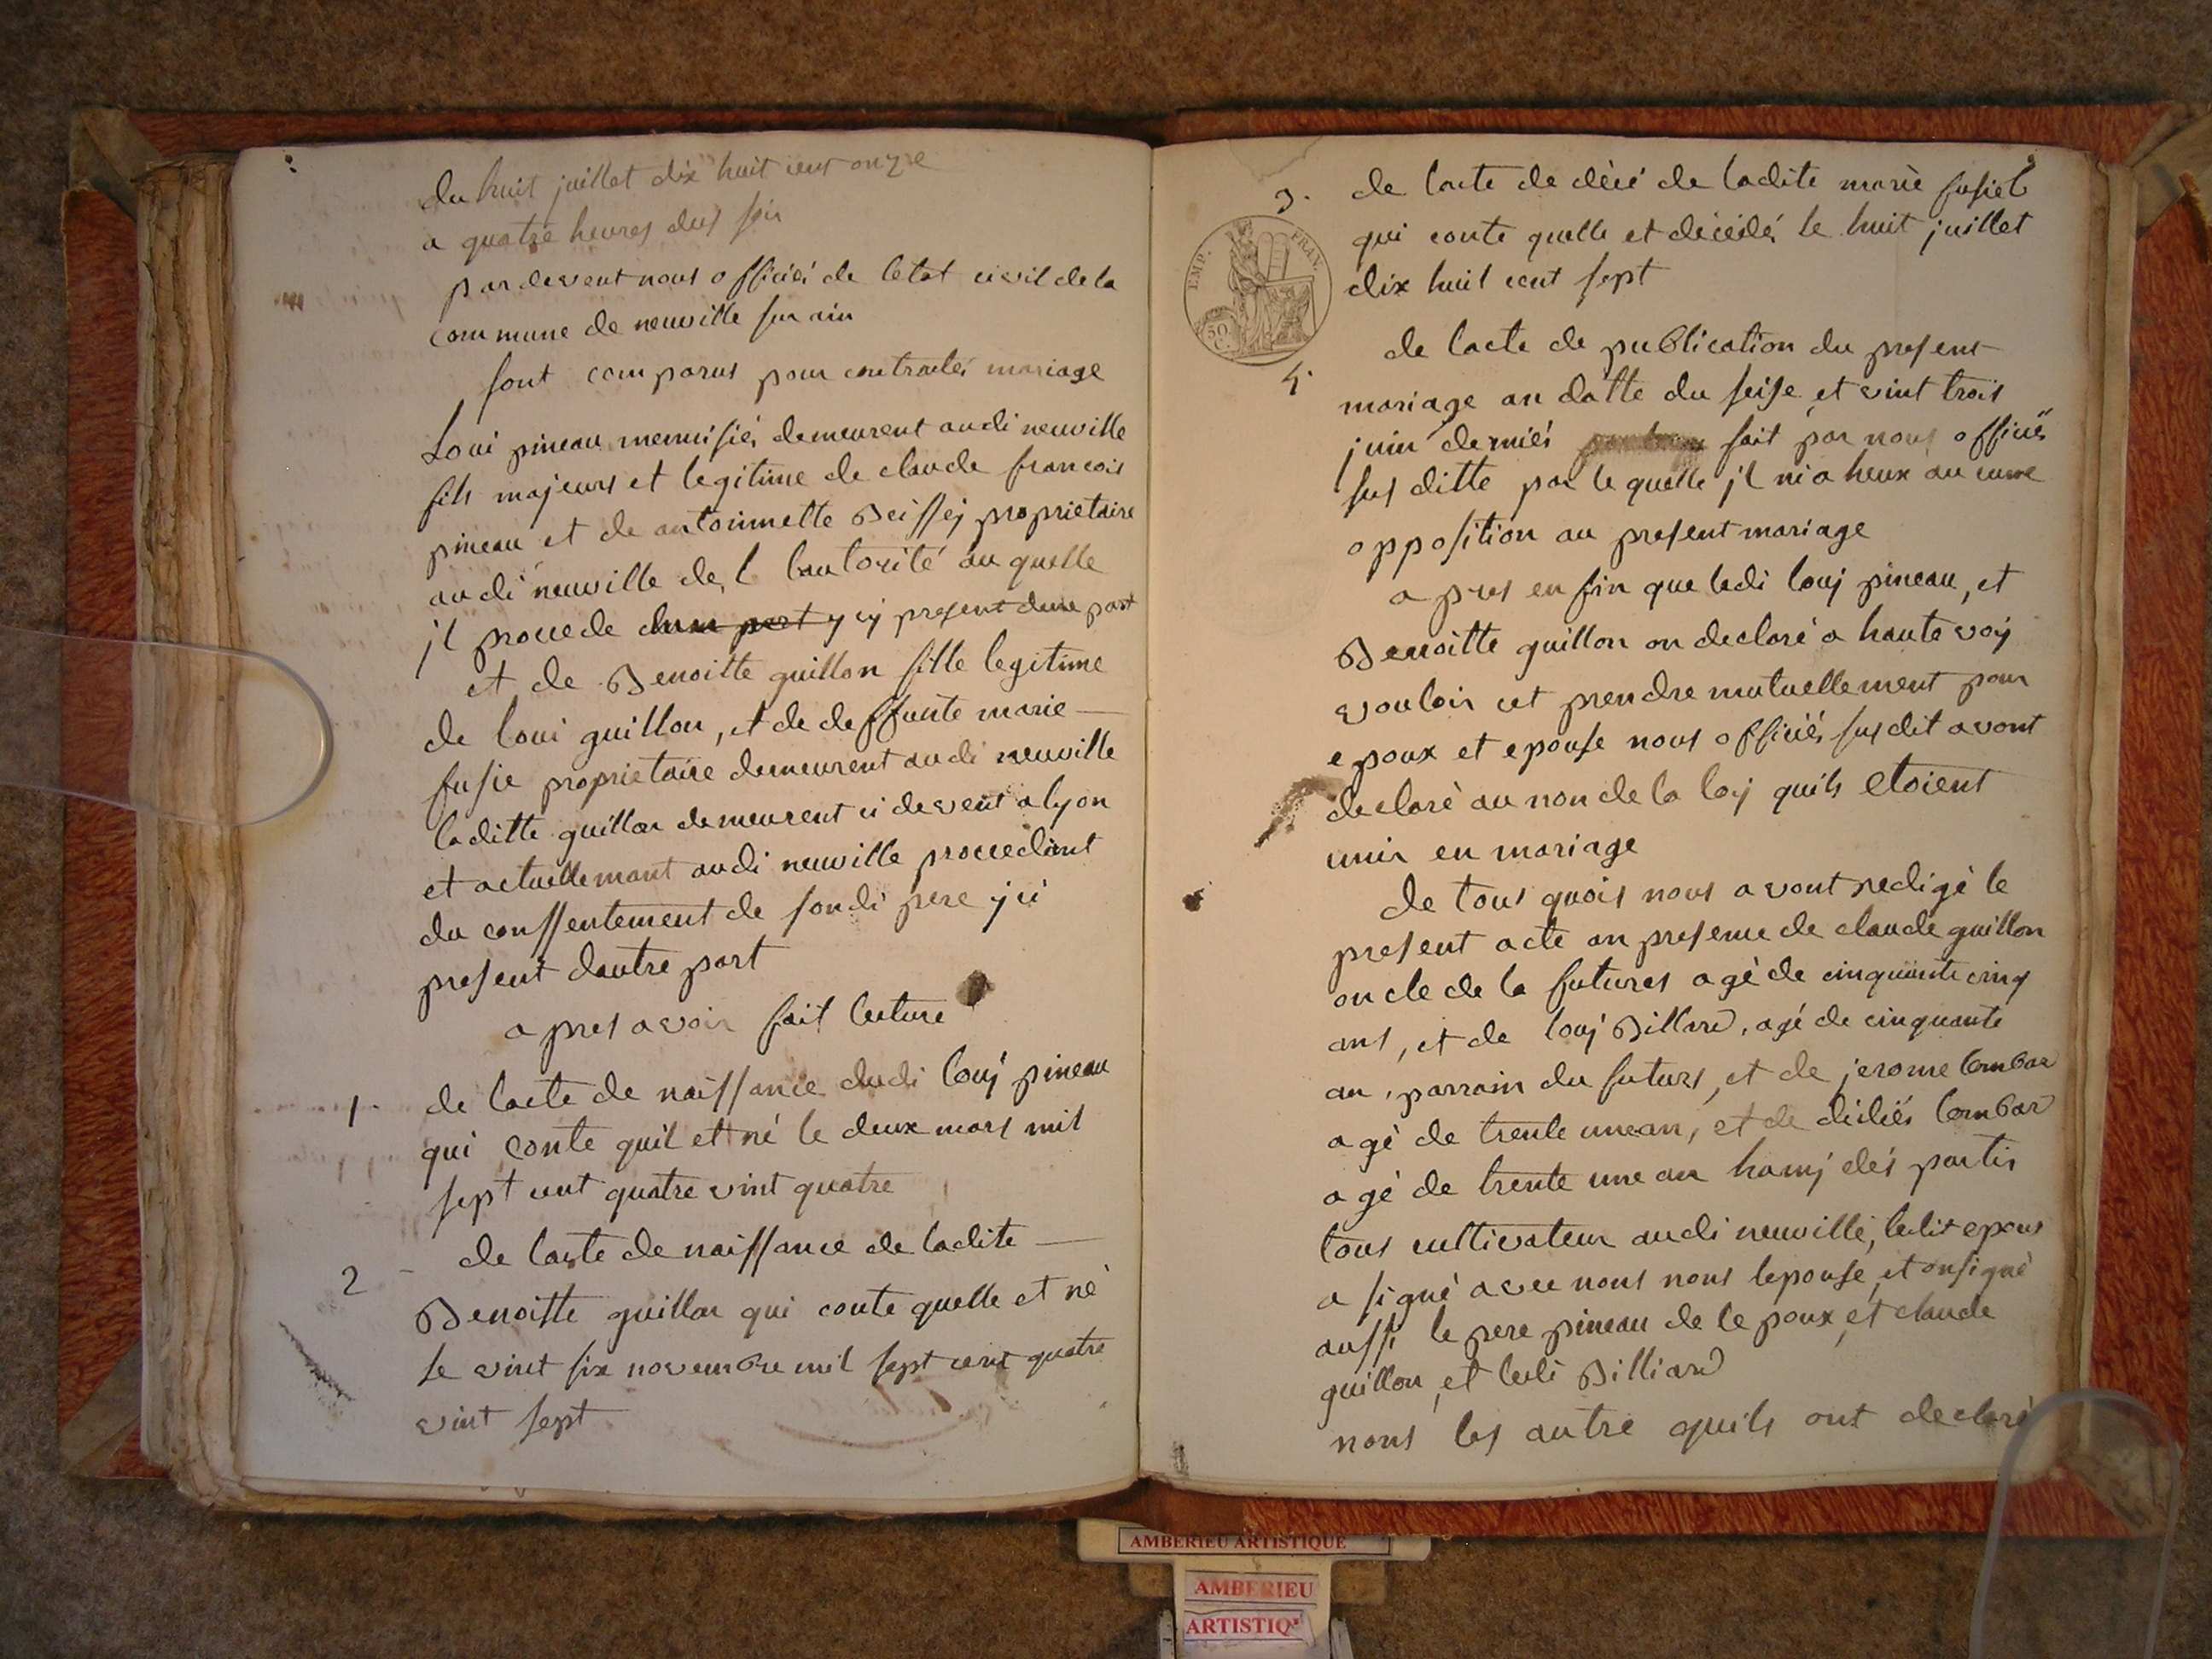 du huit juillet dix huit cent onze
a quatre heures dus soir
par devent nous officiéi de letat civil de la
commune de neuville sur ain
sont comparus pour contractéi mariage
Loui pineau menuisiéi demeurent audi neuville
fils majeurs et legitime de claude francois
pineau et de antoinnette Beissej proprietaire
audi neuville de l lautorité au quelle
jl procede dunn part y cy present dune part
et de Benoitte guillon fille legitime
de loui guillon, et de deffunte marie
fusie proprietaire demeurent audi neuville
laditte guillon demeurent ci devent a lyon
et actuellemant audi neuville proceedant
du conssentement de sondi pere jci
present dautre part
apres avoir fait lecture
1. de lacte de naissance dudi louj pineau
qui conte quil et né le deux mars mil
sept cent quatre vint quatre
2 - de lacte de naissance de ladite
Benoitte guillon qui conte quelle et né
le vint six novembre mil sept cent quatre
vint sept
3. de lacte de décé de ladite marie fusiel
EMP. FRAN.
50 C.
qui conte quelle et décédé le huit juillet
dix huit cent sept
4. de lacte de publication du present
mariage an datte du seise et vint trois
juin derniéi fait par nous officiéi
sus ditte par le quelle jl ni a heux au cune
opposition au present mariage
apres en fin que ledi louj pineau, et
Benoitte guillon on declaré a haute voij
vouloir cet prendre mutuellement pour
epoux et epouse nous officiéi susdit avont
declaré au non de la loij quils etoient
unir en mariage
de tous quois nous avont redigé le
present acte an presence de claude guillon
oncle de la futures agé de cinquante cinq
ans, et de louj Billard, agé de cinquante
an, parrain du futurs, et de jerome lombar
agé de trente une an, et de didiéi lombar
agé de trente une an hamj dés partis
tous cultivateur audi neuville, ledit epous
a signé avec nous nons lepouse, et onsigné
aussi le pere pineau de lepoux, et claude
guillon, et ledi Billiard
nons les autre quils ont declaré
AMBERIEU ARTISTIQUE
AMBERIEU
ARTISTIQ